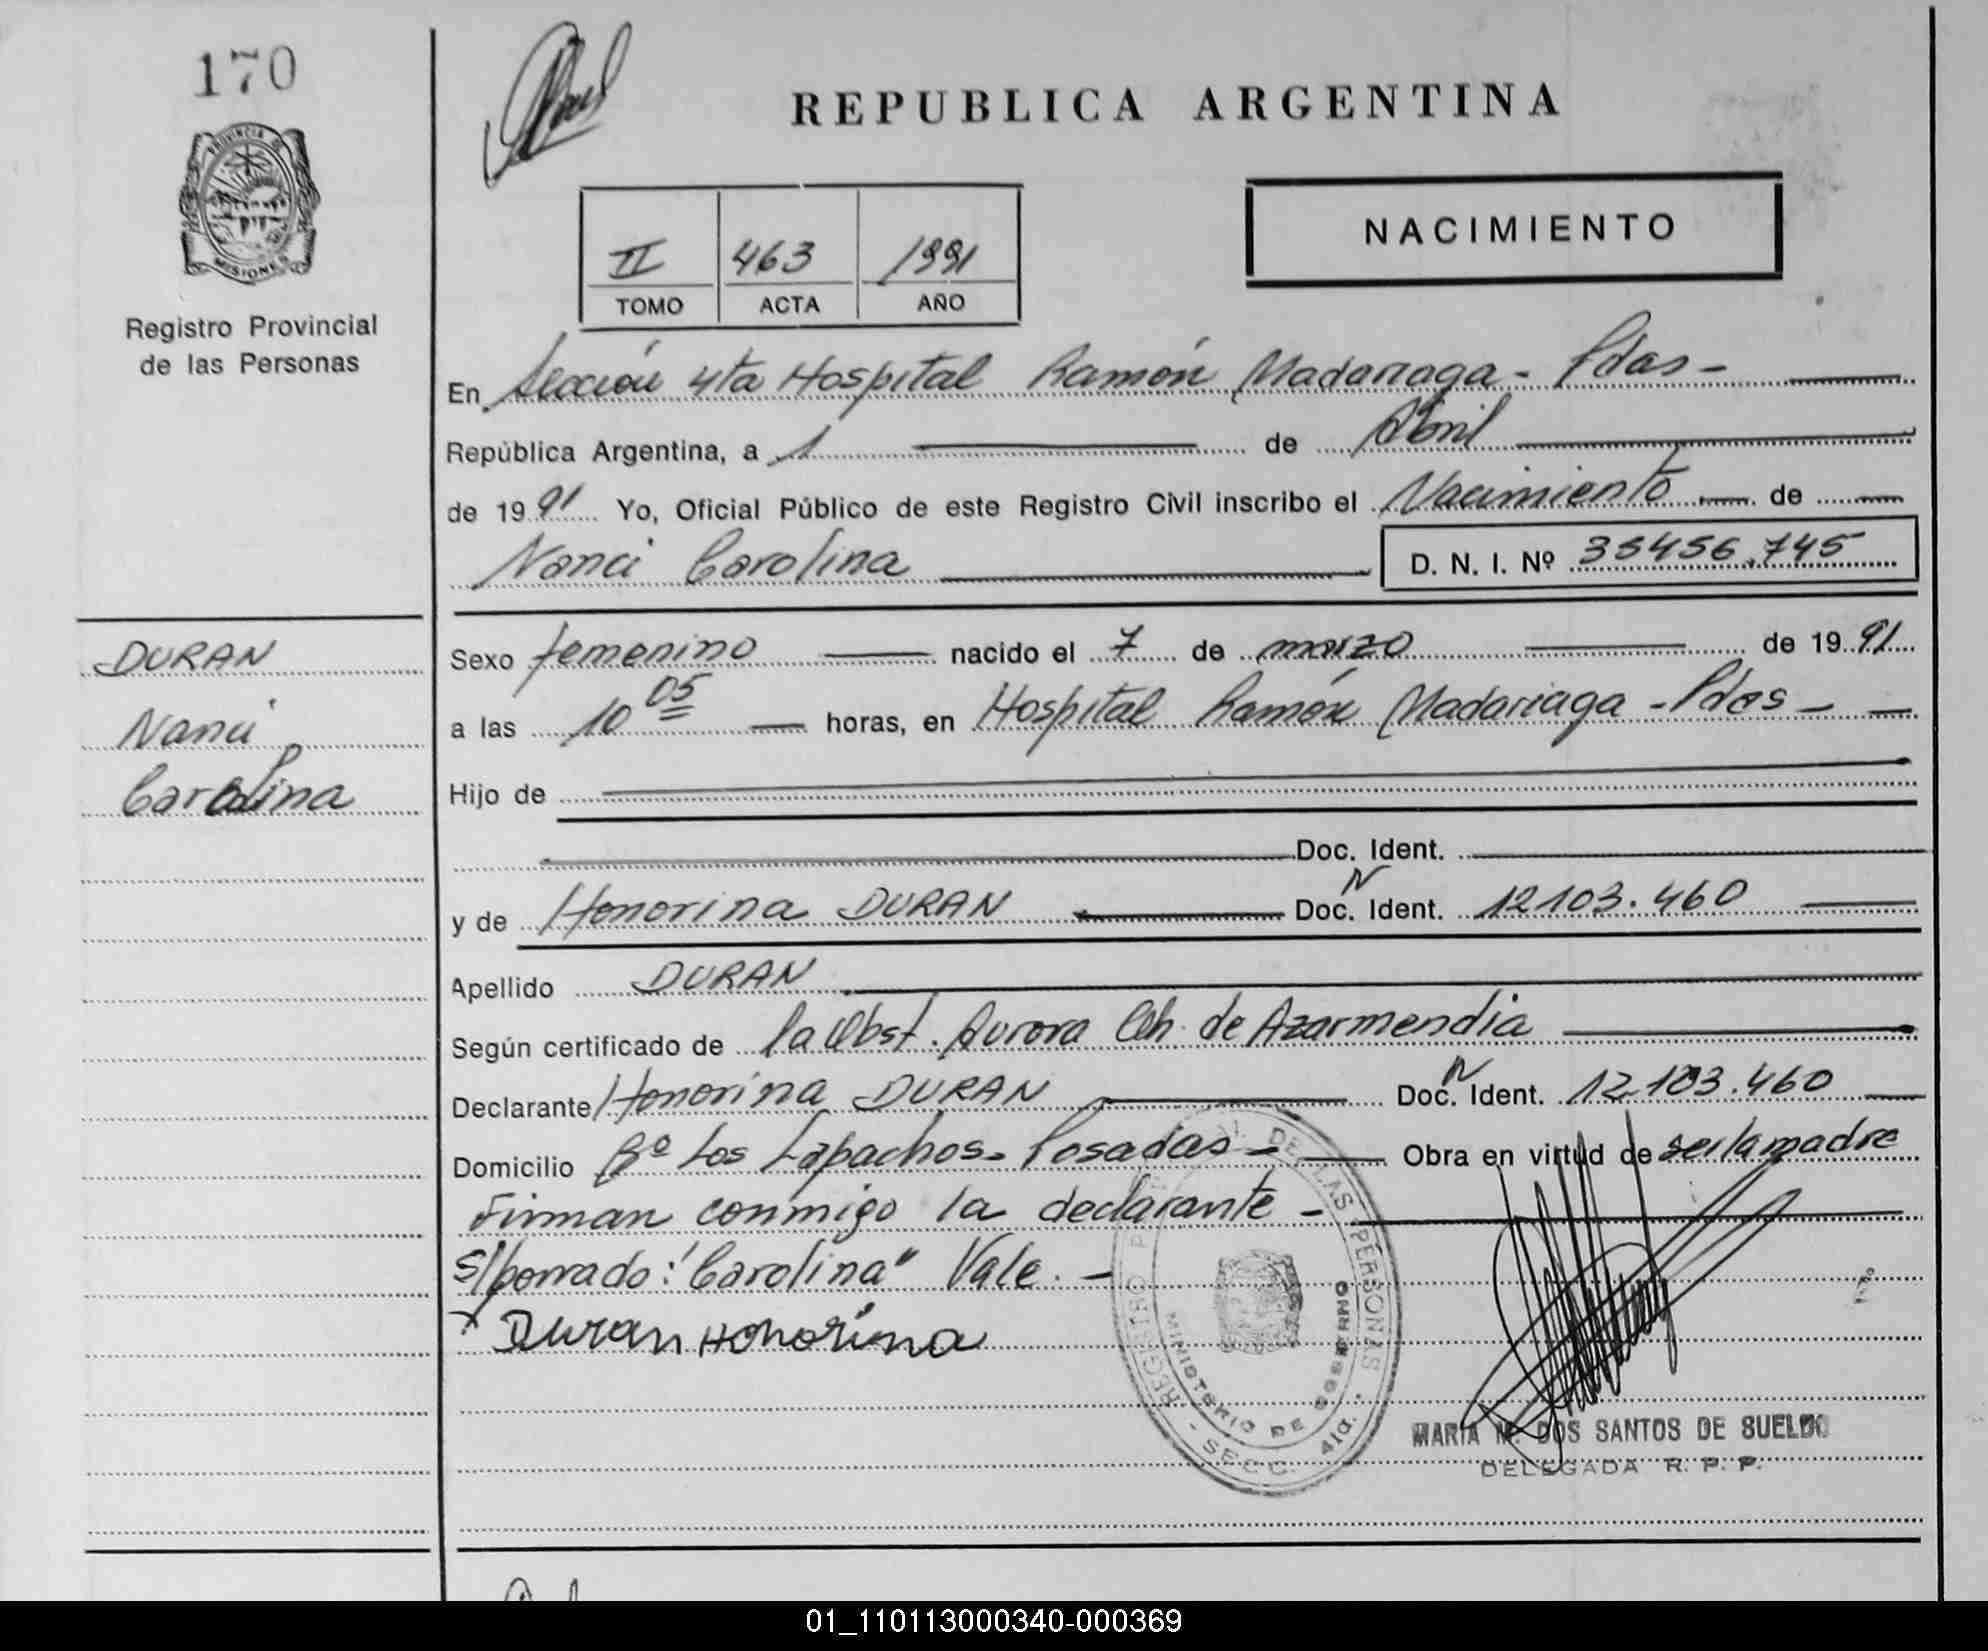 170
REPUBLICA ARGENTINA
PROVINCIA D
MISIONES
Registro Provincial
de las Personas
NACIMIENTO
II 463 1991
TOMO ACTA AÑO
En Sección 4ta Hospital Ramón Madariaga - Pdas -
República Argentina, a 1 de Abril
de 1991 Yo, Oficial Público de este Registro Civil inscribo el Nacimiento de
Nanci Carolina D. N. I. Nº 35456.745
DURAN
Nanci
Carolina
Sexo femenino nacido el 7 de marzo de 1991
a las 10 05 horas, en Hospital Ramón Madariaga - Pdas -
Hijo de
Doc. Ident.
y de Honorina DURAN Doc. N Ident. 12103.460
Apellido DURAN
Según certificado de la Obst. Aurora Ch. de Azarmendia
Declarante Honorina DURAN Doc. N Ident. 12.103.460
Domicilio Bº Los Lapachos - Posadas - Obra en virtud de ser la madre
Firman conmigo la declarante -
S/borrado: "Carolina" Vale. -
Duran Honorina
REGISTRO P DE LAS PERSONAS
MINISTERIO DE GOBIERNO
- SECC. 4ta.
MARIA M. DOS SANTOS DE SUELDO
DELEGADA R. P. P.
01_110113000340-000369